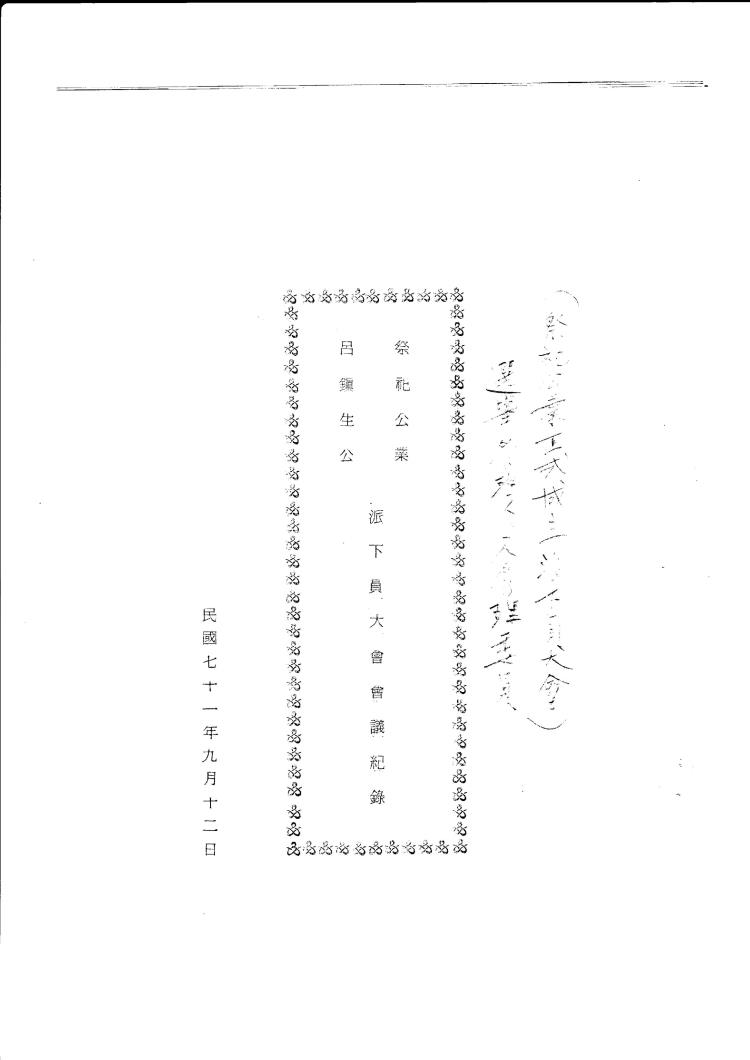 （祭祀公業正式成立派下員大會）
選舉 管理委員
祭祀公業
呂鎭生公
派下員大會會議紀錄
民國七十一年九月十二日